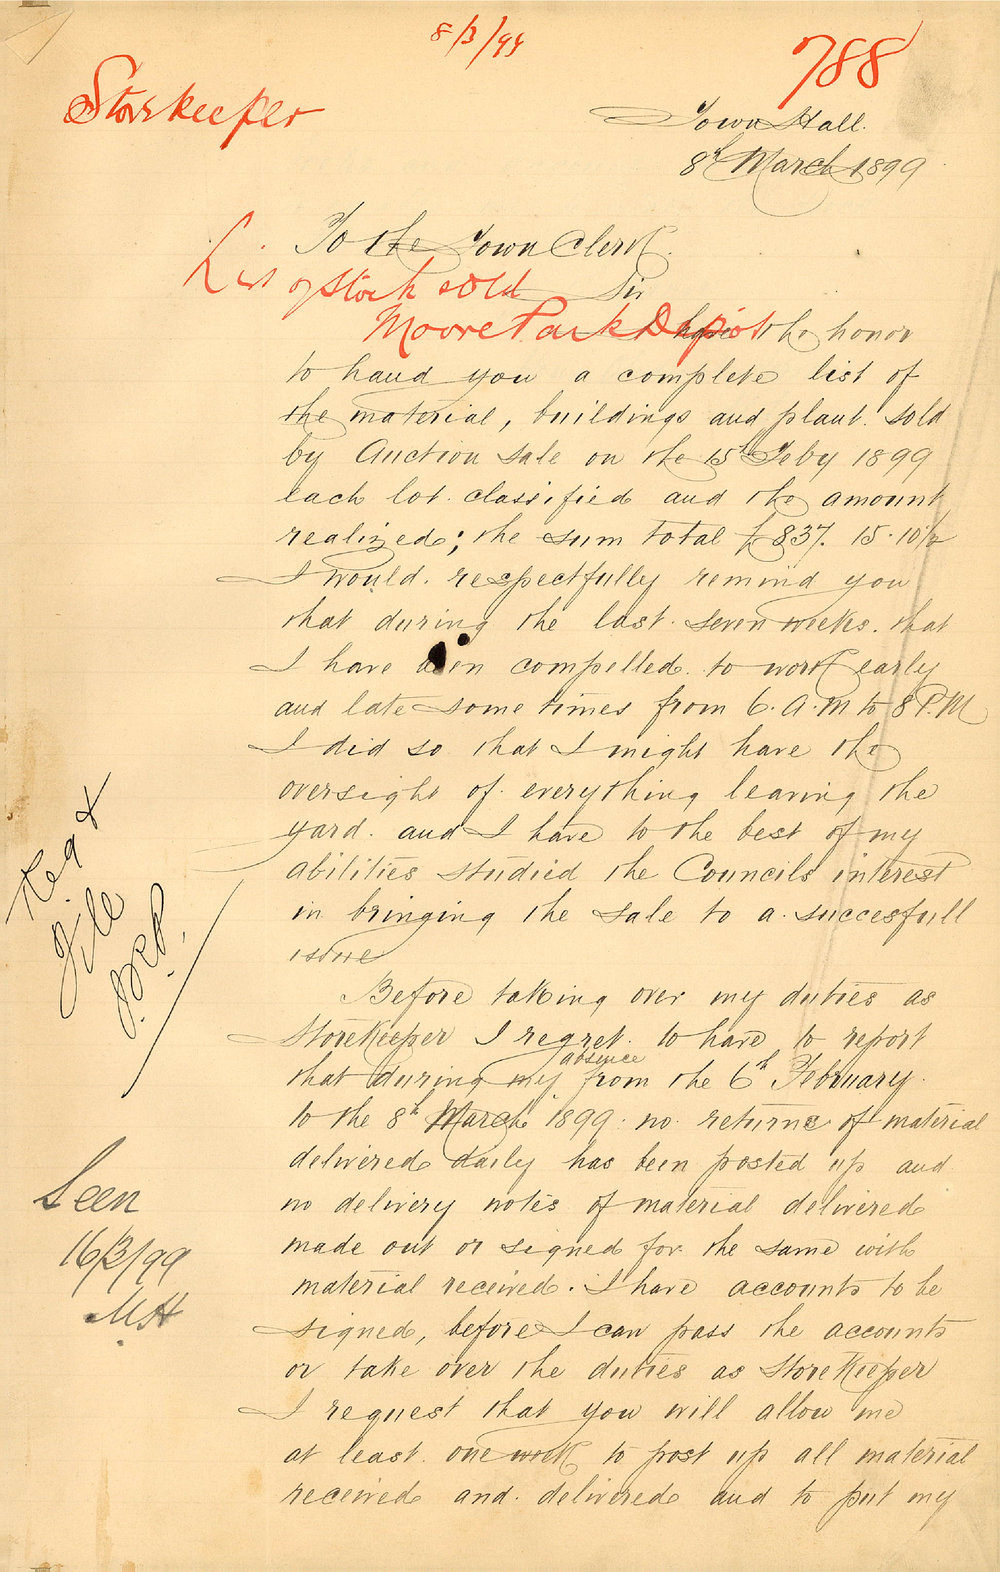 8/3/99
788
Storekeeper
Town Hall.
8th March 1899
To the Town Clerk.
List of stock sold
Sir
Moore Park Depot
I have the honor
to hand you a complete list of
the material, buildings and plant. sold
by Auction sale on the 15th Feby 1899
each lot. classified and the amount
realized; the sum total £837. 15. 10½
I would. respectfully remind you
that during the last. seven weeks. that
I have been compelled. to work early
and late some times from 6. A.M to 8 P.M
I did so that I might have the
oversight of. everything leaving the
yard. and I have to the best of my
abilities studied the Councils interest
in bringing the sale to a. succesfull
issue
Before taking over my duties as
StoreKeeper I regret. to have to report
that during my absence from the 6th February.
to the 8th March 1899. no. returns of material
delivered daily has been posted up and
no delivery notes of material delivered
made out or signed for. the same with
material received. I have accounts to be
signed, before I can pass the accounts
or take over the duties as StoreKeeper
I request that you will allow me
at least. one week to post up all material
received and. delivered and to put my
Reg &
File
Seen
16/3/99
MH